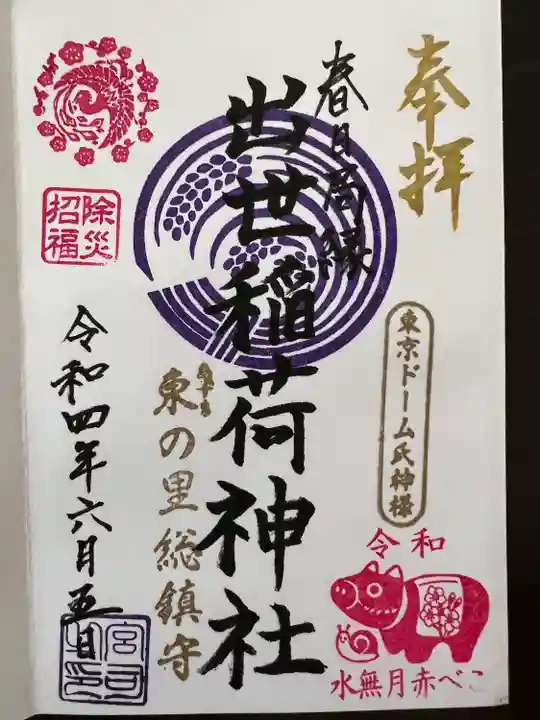 奉拝
東京ドーム氏神様
令和
水無月赤べこ
春日局縁
出世稲荷神社
東の里総鎮守
除災
招福
令和四年六月五日
宮司